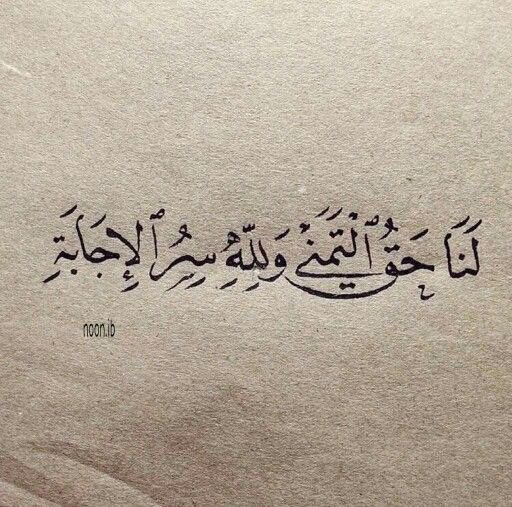 لَنَا حَقُ ٱلْتَمَنِي وَلِلّهِ سِرُ ٱلإِجَابَةِ
noon.ib